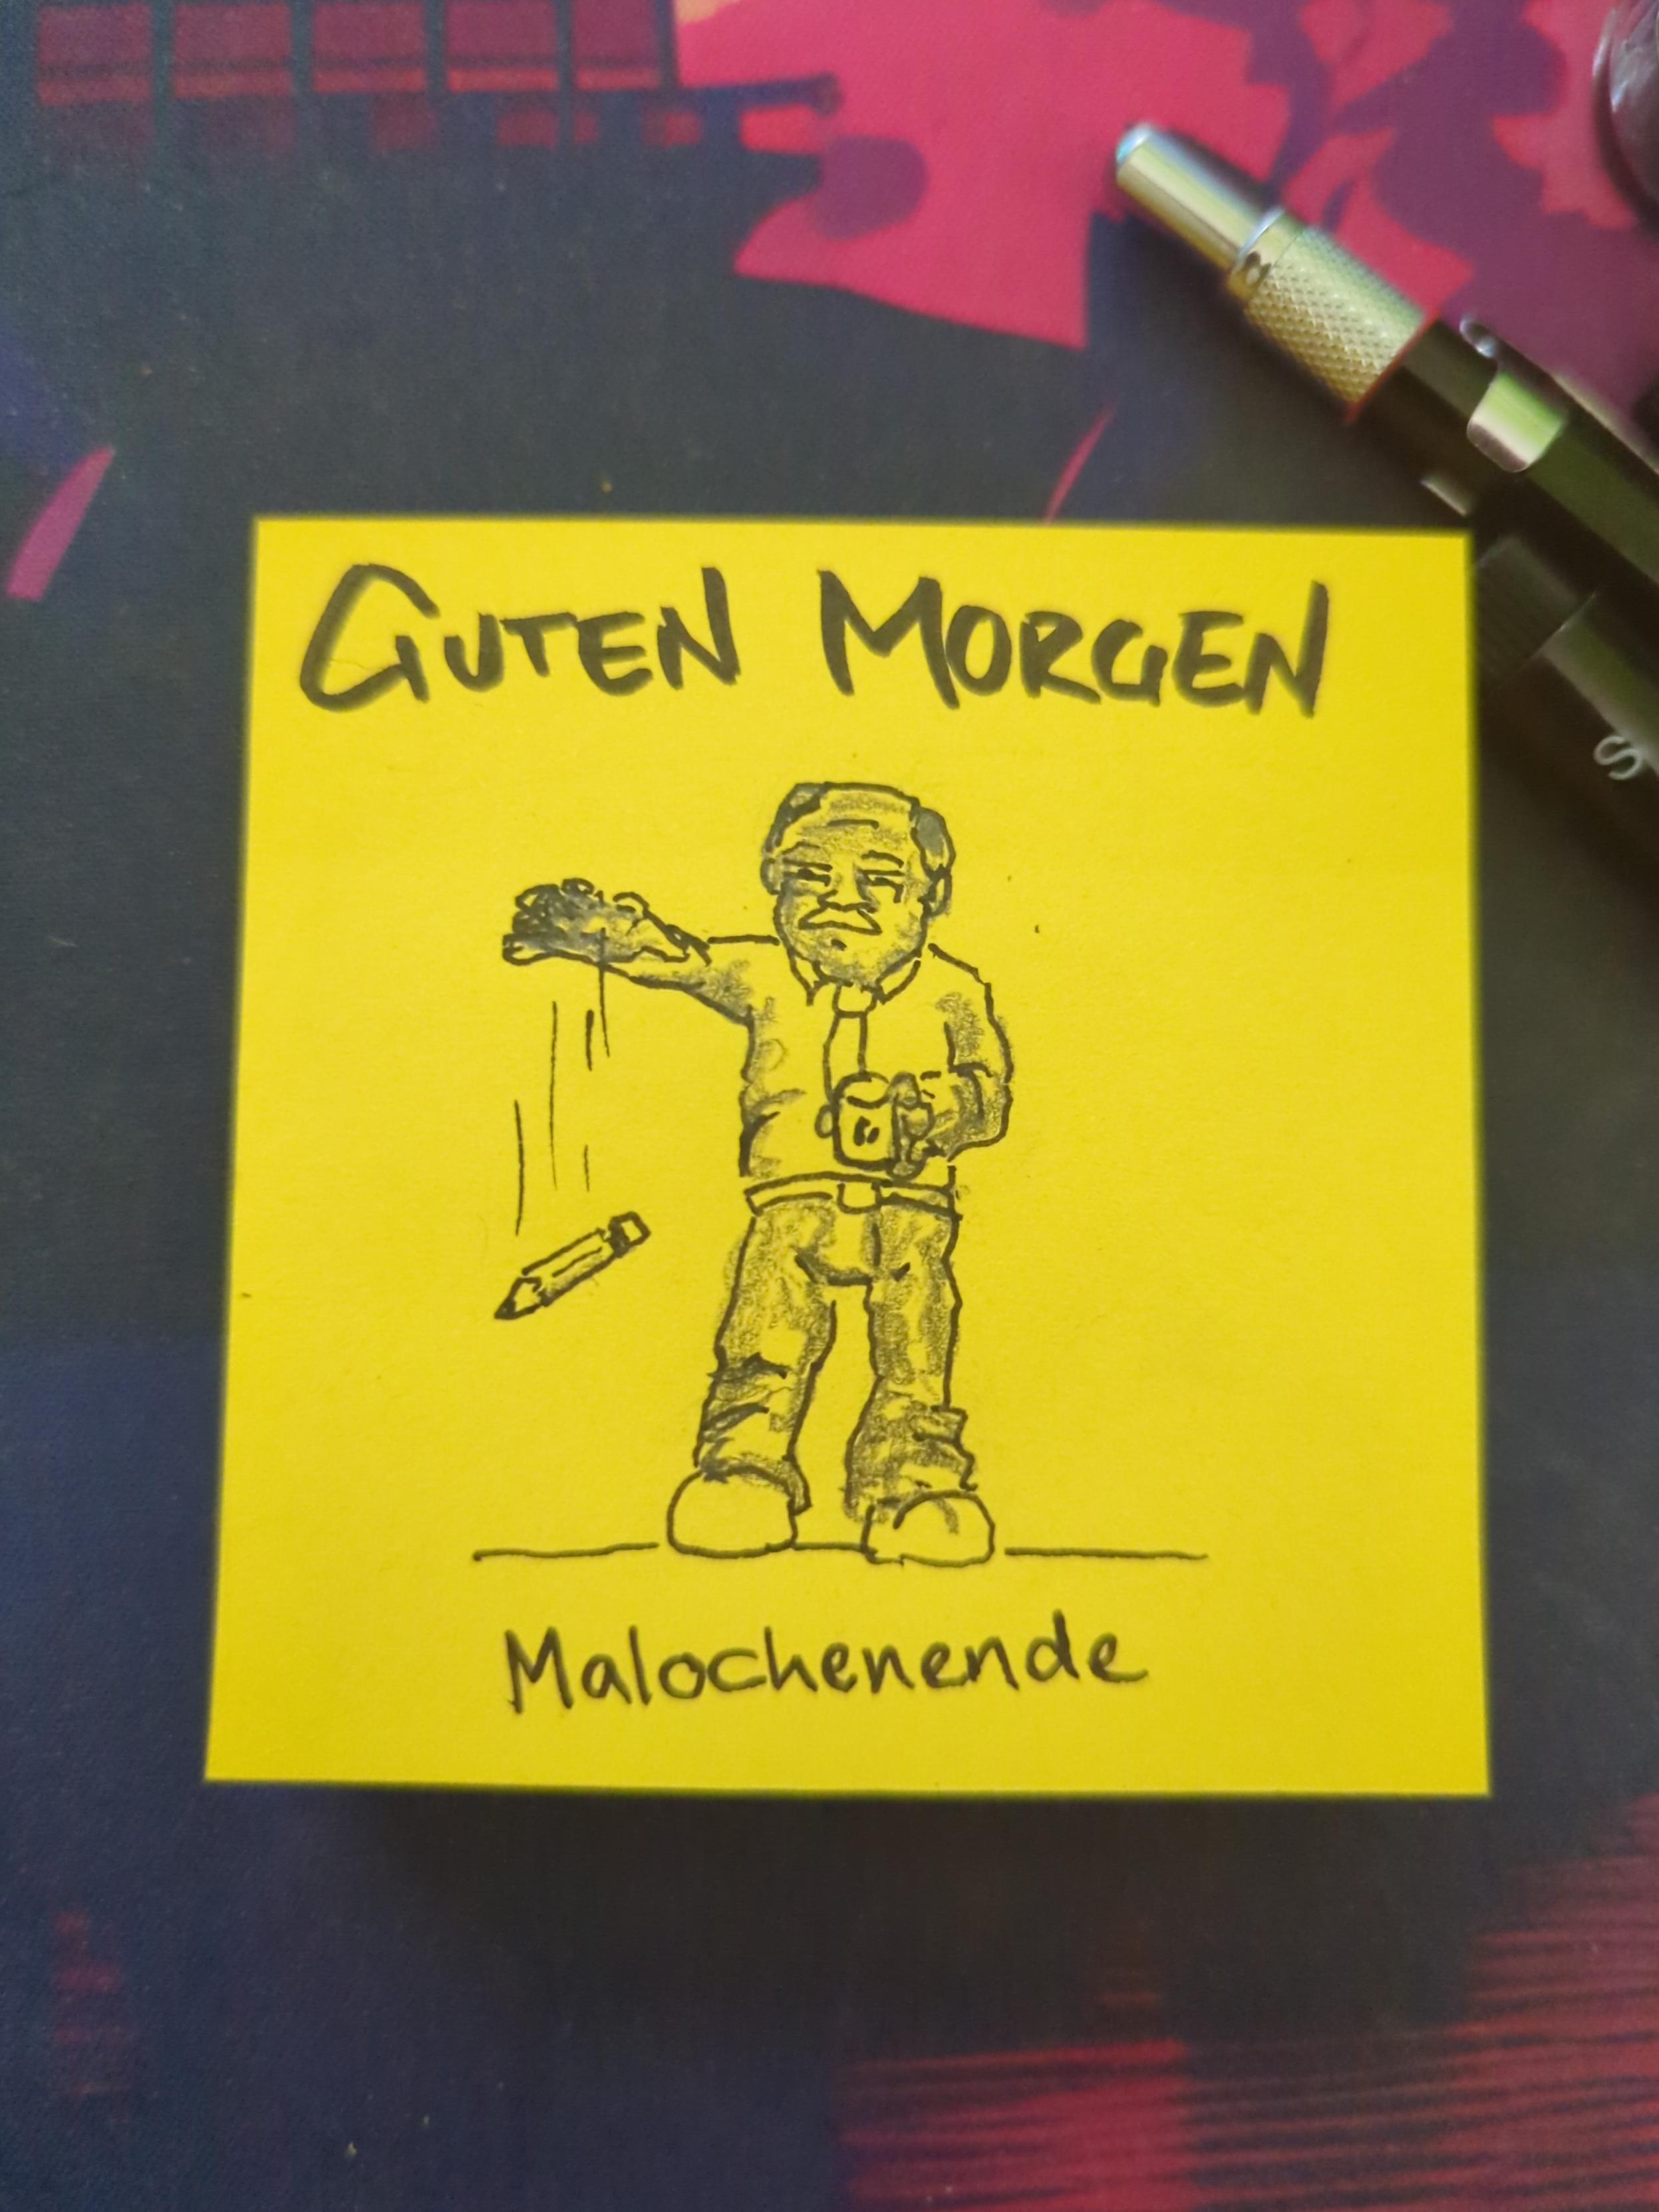 GUTEN MORGEN
Malochenende
S